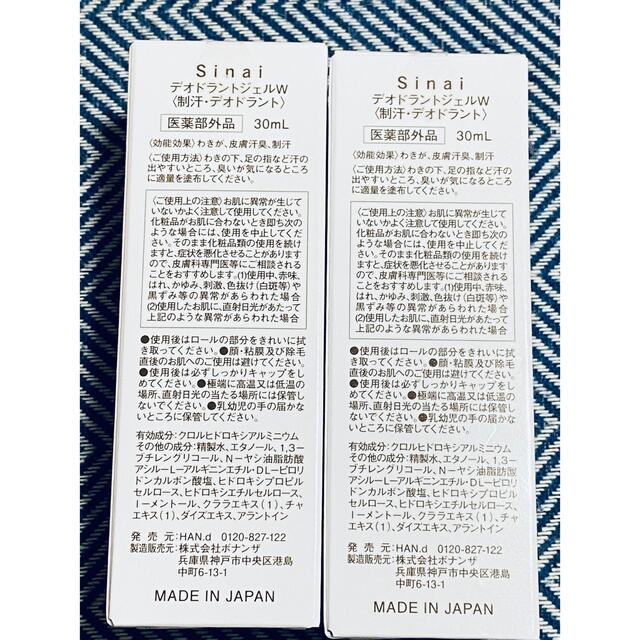 Sinai
デオドラントジェルW
〈制汗・デオドラント〉
医薬部外品 30mL
〈効能効果〉わきが、皮膚汗臭、制汗
〈ご使用方法〉わきの下、足の指など汗の
出やすいところ、臭いが気になるところ
に適量を塗布してください。
〈ご使用上の注意〉お肌に異常が生じて
いないかよく注意して使用してください。
化粧品がお肌に合わないとき即ち次の
ような場合には、使用を中止してくださ
い。そのまま化粧品類の使用を続け
ますと、症状を悪化させることがあります
ので、皮膚科専門医等にご相談される
ことをおすすめします。(1)使用中、赤味、
はれ、かゆみ、刺激、色抜け(白斑等)や
黒ずみ等の異常があらわれた場合
(2)使用したお肌に、直射日光があたって
上記のような異常があらわれた場合
●使用後はロールの部分をきれいに拭
き取ってください。●顔・粘膜及び除毛
直後のお肌へのご使用は避けてください。
●使用後は必ずしっかりキャップをし
めてください。●極端に高温又は低温の
場所、直射日光の当たる場所には保管し
ないでください。●乳幼児の手の届かな
いところに保管してください。
有効成分:クロルヒドロキシアルミニウム
その他の成分:精製水、エタノール、1,3-
ブチレングリコール、N-ヤシ油脂肪酸
アシル-L-アルギニンエチル・DL-ピロリ
ドンカルボン酸塩、ヒドロキシプロピル
セルロース、ヒドロキシエチルセルロース、
l-メントール、クララエキス(1)、チャ
エキス(1)、ダイズエキス、アラントイン
発売元:HAN.d 0120-827-122
製造販売元:株式会社ボナンザ
兵庫県神戸市中央区港島
中町6-13-1
MADE IN JAPAN
Sinai
デオドラントジェルW
〈制汗・デオドラント〉
医薬部外品 30mL
〈効能効果〉わきが、皮膚汗臭、制汗
〈ご使用方法〉わきの下、足の指など汗の
出やすいところ、臭いが気になるところ
に適量を塗布してください。
〈ご使用上の注意〉お肌に異常が生じて
いないかよく注意して使用してください。
化粧品がお肌に合わないとき即ち次の
ような場合には、使用を中止してくださ
い。そのまま化粧品類の使用を続け
ますと、症状を悪化させることがあります
ので、皮膚科専門医等にご相談される
ことをおすすめします。(1)使用中、赤味、
はれ、かゆみ、刺激、色抜け(白斑等)や
黒ずみ等の異常があらわれた場合
(2)使用したお肌に、直射日光があたって
上記のような異常があらわれた場合
●使用後はロールの部分をきれいに拭
き取ってください。●顔・粘膜及び除毛
直後のお肌へのご使用は避けてください。
●使用後は必ずしっかりキャップをし
めてください。●極端に高温又は低温の
場所、直射日光の当たる場所には保管し
ないでください。●乳幼児の手の届かな
いところに保管してください。
有効成分:クロルヒドロキシアルミニウム
その他の成分:精製水、エタノール、1,3-
ブチレングリコール、N-ヤシ油脂肪酸
アシル-L-アルギニンエチル・DL-ピロリ
ドンカルボン酸塩、ヒドロキシプロピル
セルロース、ヒドロキシエチルセルロース、
l-メントール、クララエキス(1)、チャ
エキス(1)、ダイズエキス、アラントイン
発売元:HAN.d 0120-827-122
製造販売元:株式会社ボナンザ
兵庫県神戸市中央区港島
中町6-13-1
MADE IN JAPAN